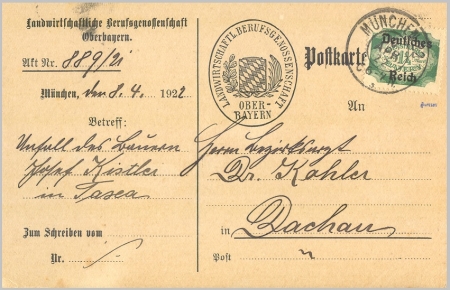 Landwirtschaftliche Berufsgenossenschaft
Oberbayern.
Akt Nr. 889/21
München, den 8. 4. 1922
Betreff:
Unfall des Bauern
Josef Kistler
in Lasea
Zum Schreiben vom
Nr.
LANDWIRTSCHAFTL. BERUFSGENOSSENSCHAFT
OBER-
BAYERN
Postkarte
MÜNCHEN
Deutsches
Reich
An
Herrn Bezirksarzt
Dr. Kohler
in Dachau
Post